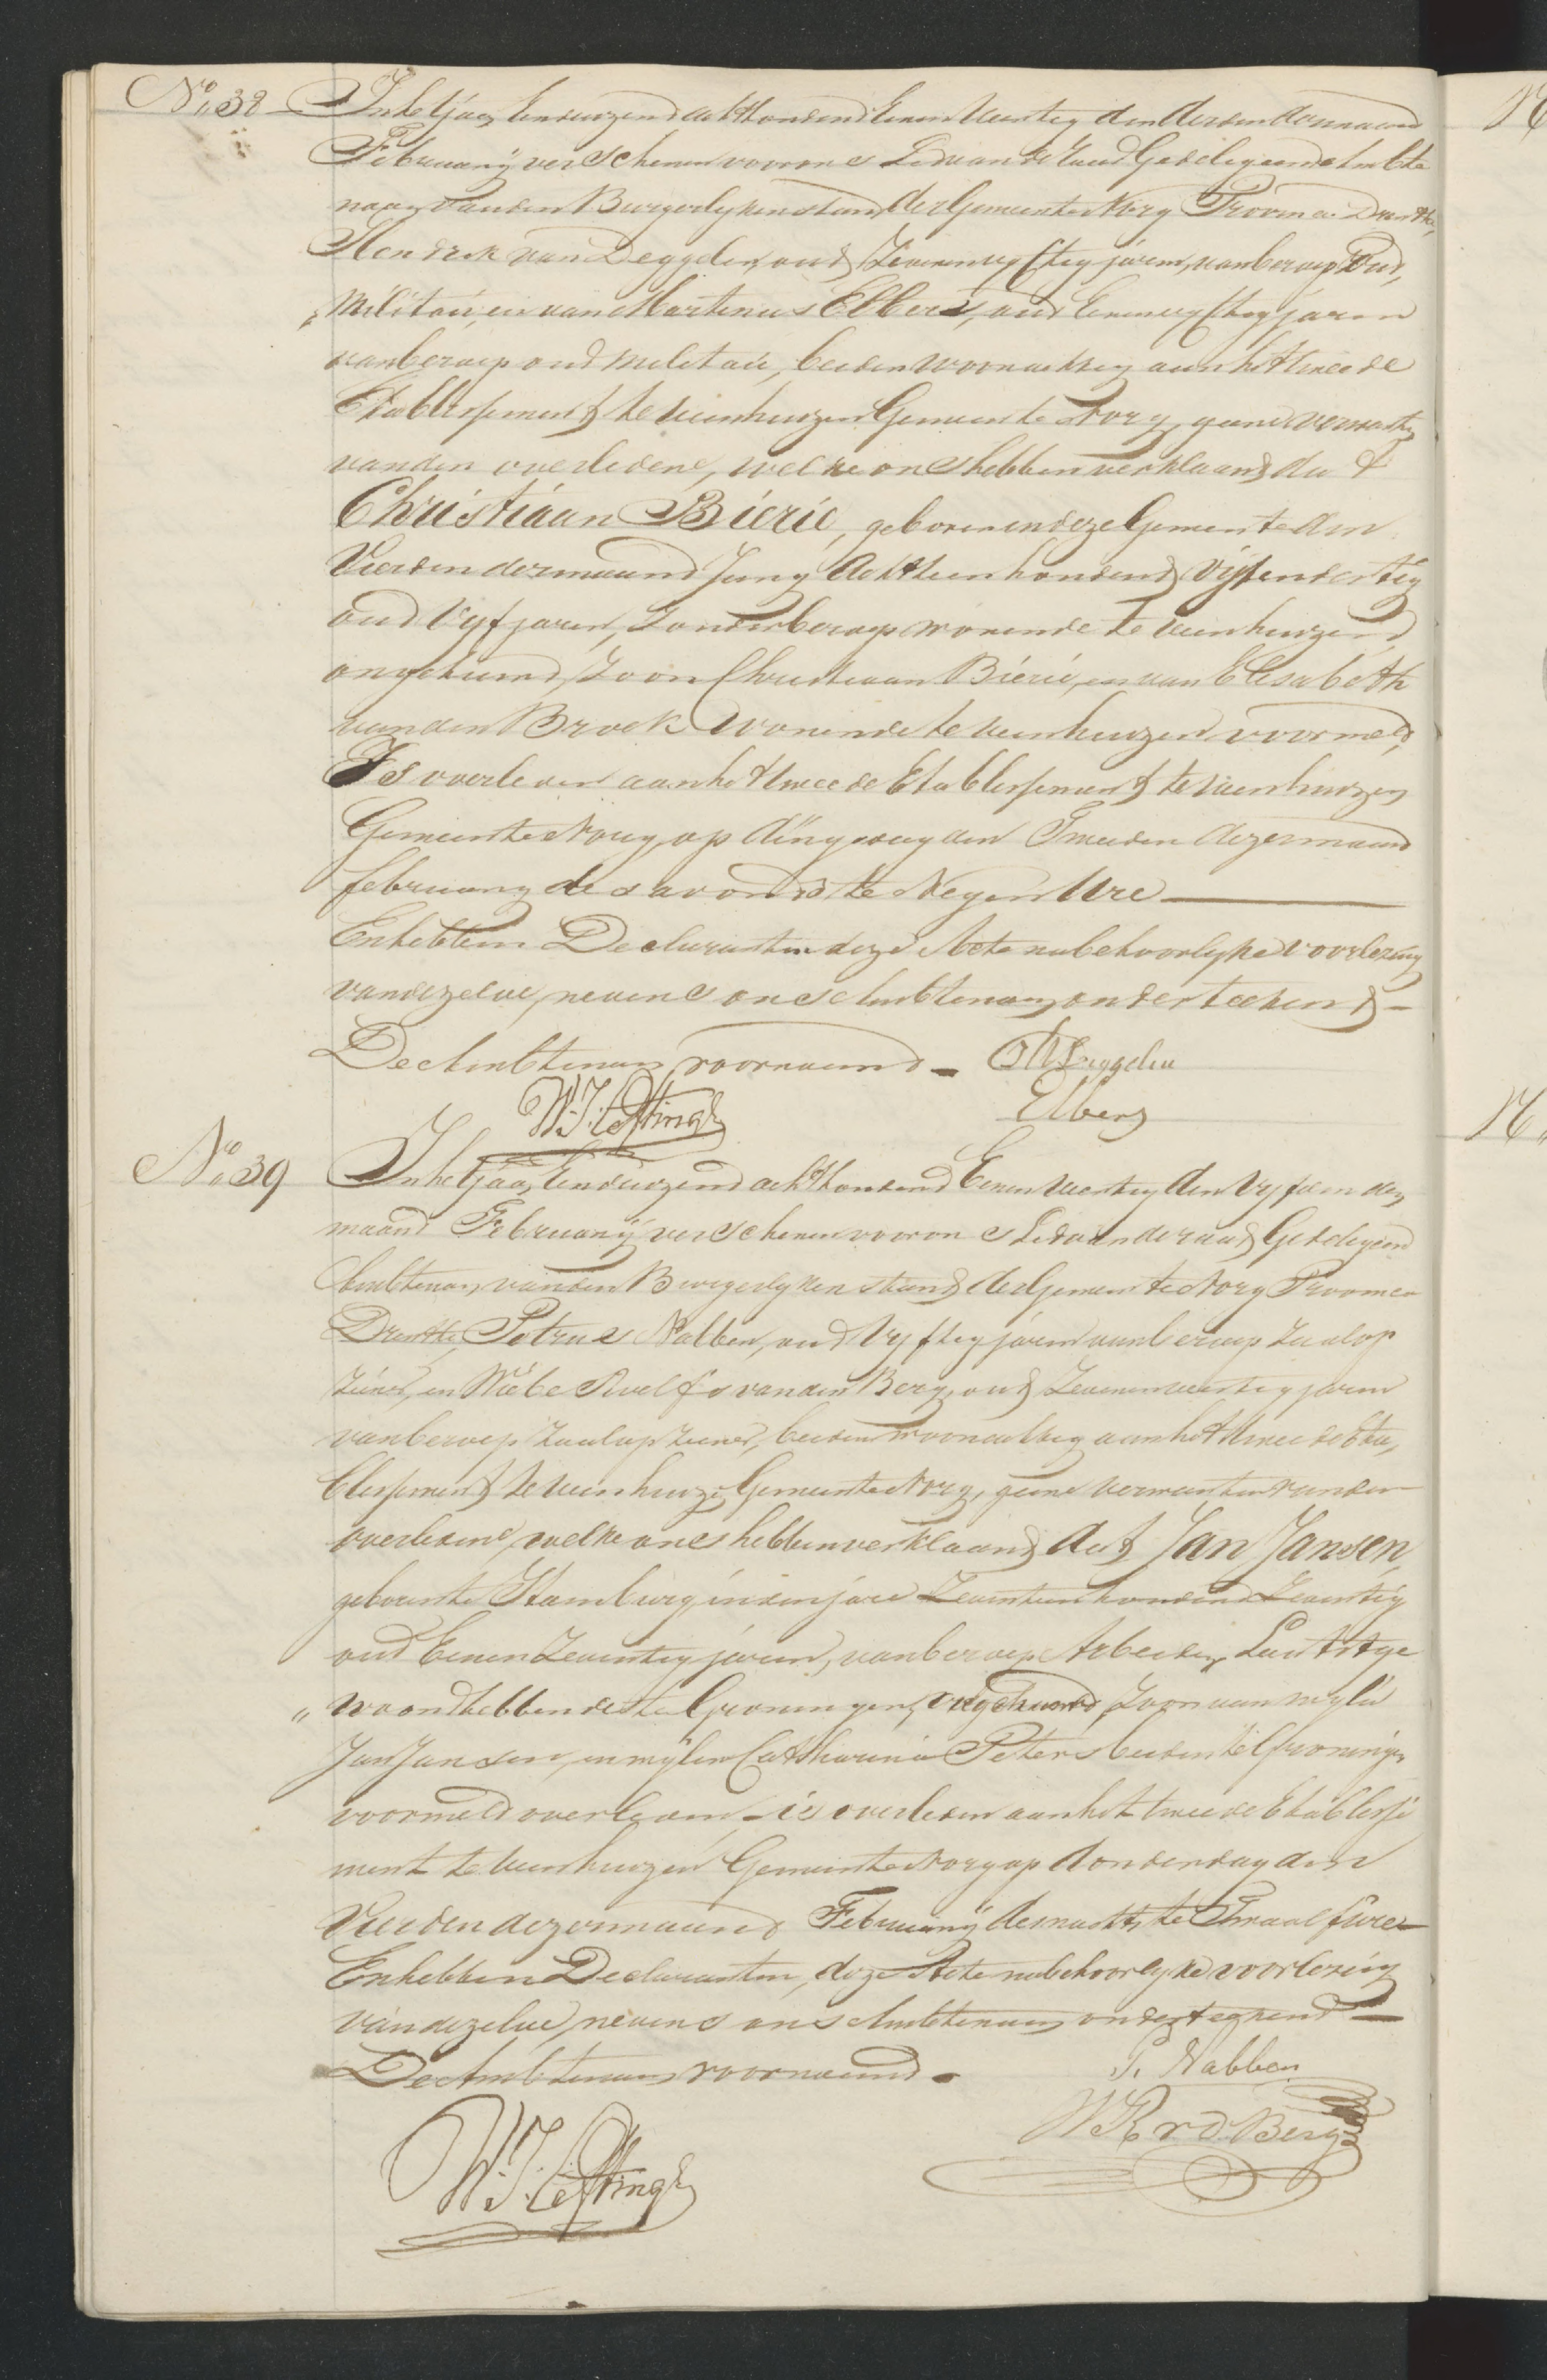 No. 38
In het jaar Een duizend acht honderd Een en Veertig den derden der maand
February verschenen voor ons Lid van de Raad Gedeligeerd Ambte
naar van den Burgerlyken stand der Gemeente Norg Provincie Drenthe,
Hendrik van Deggelen, oud Zeven en vyftig jaren, van beroep Oud,
„ Militair, en van Martinus Elbers, oud Een en vyftig jaren
van beroep oud militair, beiden woonachtig aan het tweede
Etablissement te Veenhuizen Gemeente Norg, geene verwanten
van den overledene, welke ons hebben verklaard dat
Christiaan Bierie, geboren in deze Gemeente den
Vierden der maand Juny Achttien honderd Vijf en dertig
oud Vyf jaren, Zonder beroep wonende te Veenhuizen
ongehuwd, Zoon Christiaan Bierie, en van Elisabeth
van den Broek wonende te Veenhuizen voormeld,
Is overleden aan het tweede Etablissement te Veenhuizen
Gemeente Norg, op dingsdag den Tweeden dezer maand
february des avonds te Negen Ure
En hebben Declaranten deze Acte na behoorlyke voorlezing
van dezelve, nevens ons Ambtenaar onderteekend
De Ambtenaar voornoemd. Deggelen
Elbers
W. J. Leftingh
No. 39
In het jaar Een duizend acht honderd Een en Veertig den Vyfden der
maand February verschenen voor ons Lid van de raad Gedeligeerd
Ambtenaar van den Burgerlyken stand der Gemeente Norg Provincie
Drenthe, Petrus Nabben, oud Vyftig jaren van beroep Zaalop
ziener, en Wiebe Roelfs van den Berg, oud Zeven en veertig jaren
van beroep Zaalopziener, beiden woonachtig aan het tweede Eta,
blissement te Veenhuize Gemeente Norg, geene verwanten van den
overledene, welke ons hebben verklaard dat Jan Jansen,
geboren te Hamburg in den jare Zeventien honderd Zeventig
oud Een en Zeventig jaren, van beroep Arbeider, Laatst ge
„ woond hebbende te Groningen, ongehuwd, Zoon van wylen
Jan Jansen, en wylen Catharina Peters beiden te Groningen
voormeld overleden, is overleden aan het tweede Etablisse
ment te Veenhuizen Gemeente Norg op donderdag den
Vierden dezer maand February des nachts te Twaalf ure
En hebben Declaranten, deze Acte na behoorlyke voorlezing
van dezelve, nevens ons Ambtenaar onderteekend
De Ambtenaar voornoemd. P. Nabben
W R v d Berg
W. J. Leftingh